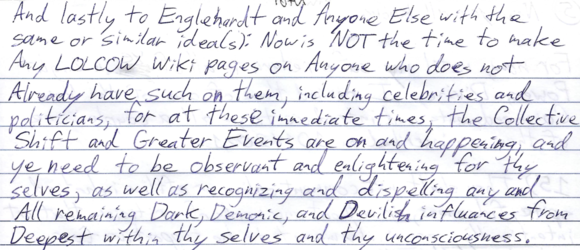 And lastly to Englehardt and Anyone Else with the
same or similar idea(s): Now is NOT the time to make
Any LOLCOW Wiki pages on Anyone who does not
Already have such on them, including celebrities and
politicians, for at these immediate times, the Collective
Shift and Greater Events are on and happening, and
ye need to be observant and enlightening for thy
selves, as well as recognizing and dispelling any and
All remaining Dark, Demonic, and Devilish influences from
Deepest within thy selves and thy unconsciousness.